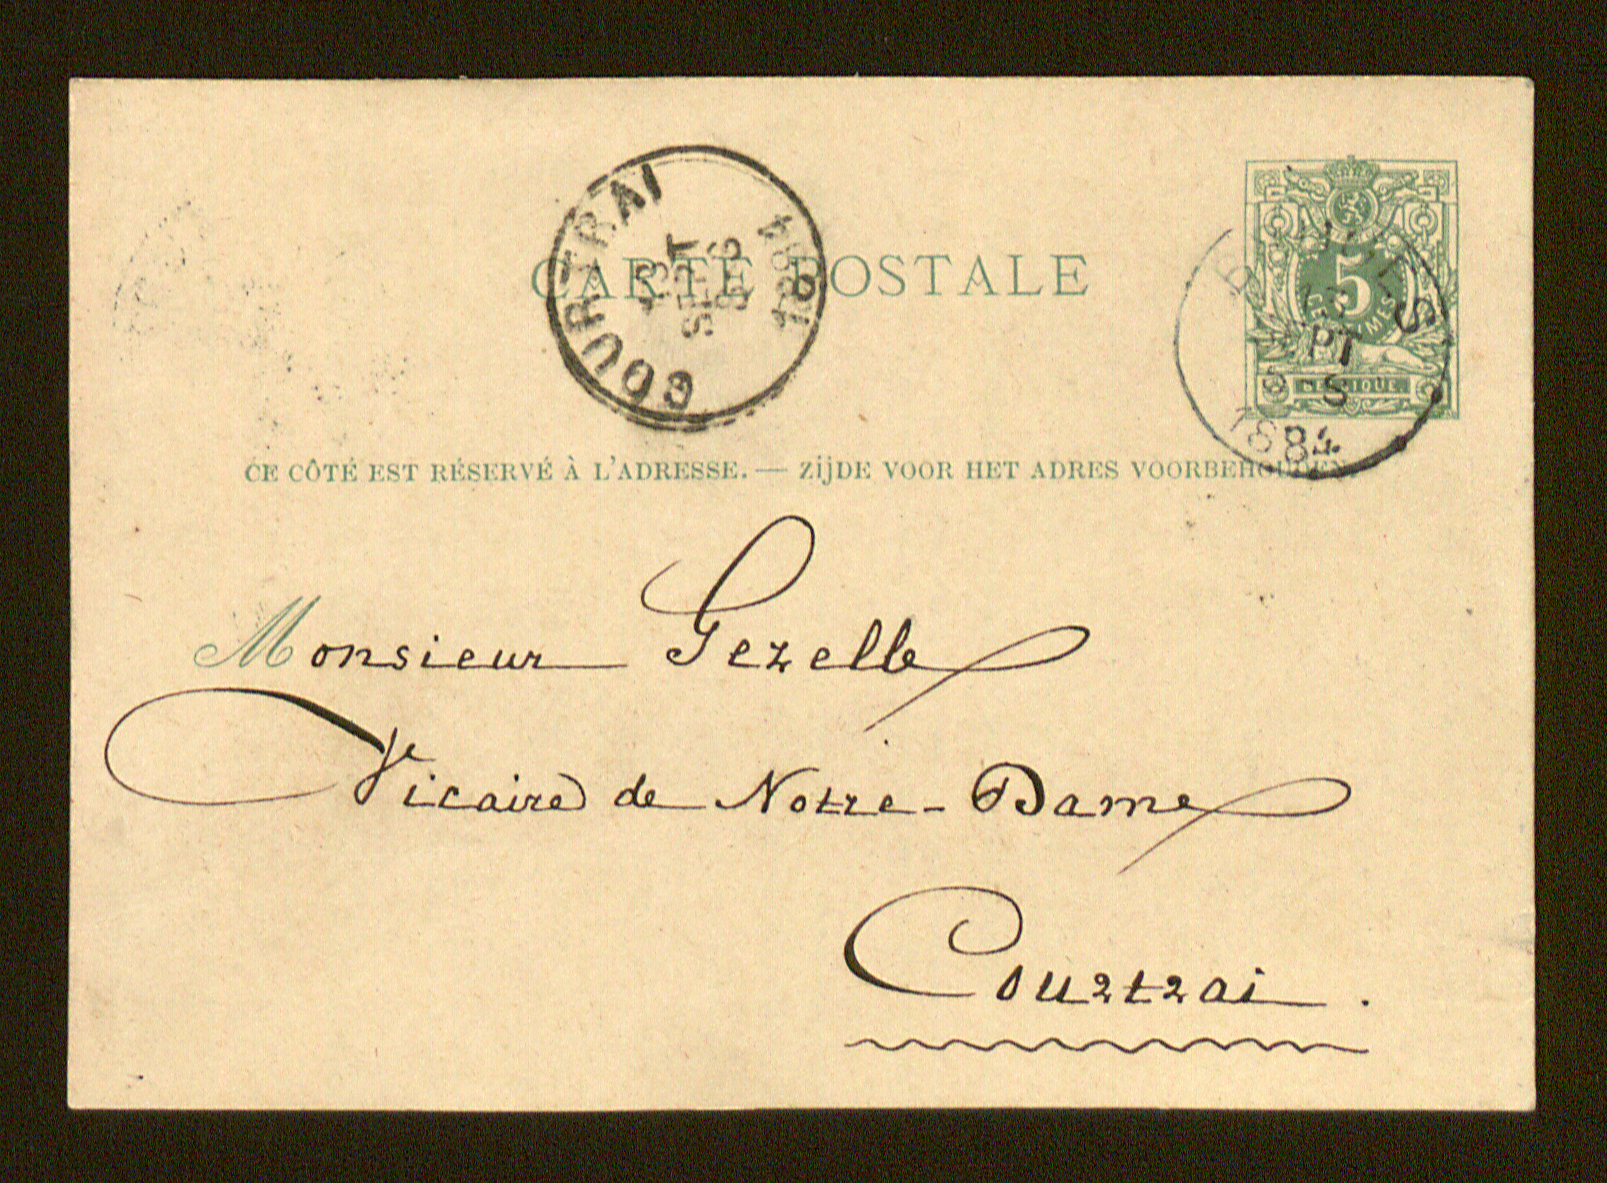 CARTE POSTALE
COURTRAI
13
SEPT
1884
5
CENTIMES
BELGIQUE
BRUGES
13
SEPT
1884
CE CÔTÉ EST RÉSERVÉ À L'ADRESSE. — ZIJDE VOOR HET ADRES VOORBEHOUDEN.
Monsieur Gezelle
Vicaire de Notre-Dame
Courtrai.